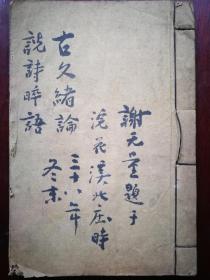 謝无量題于
浣花溪北庄時
三十八年
冬末
古文緒論
說詩晬語